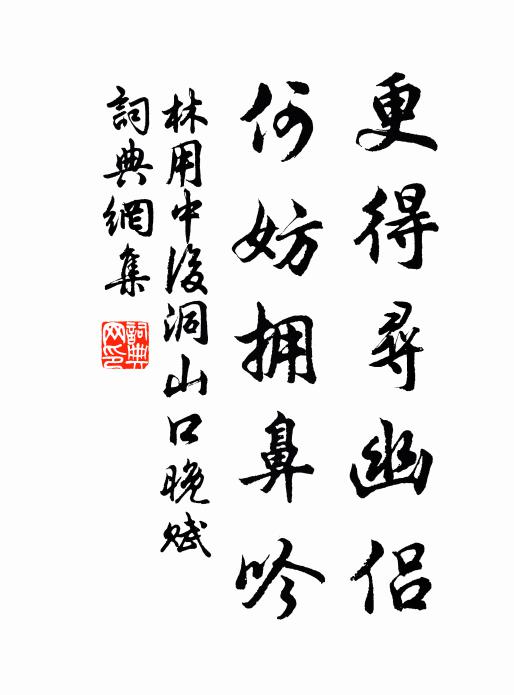 更得尋幽侣
何妨拥鼻吟
林用中後洞山口晚赋
詞典網集
詞典网印